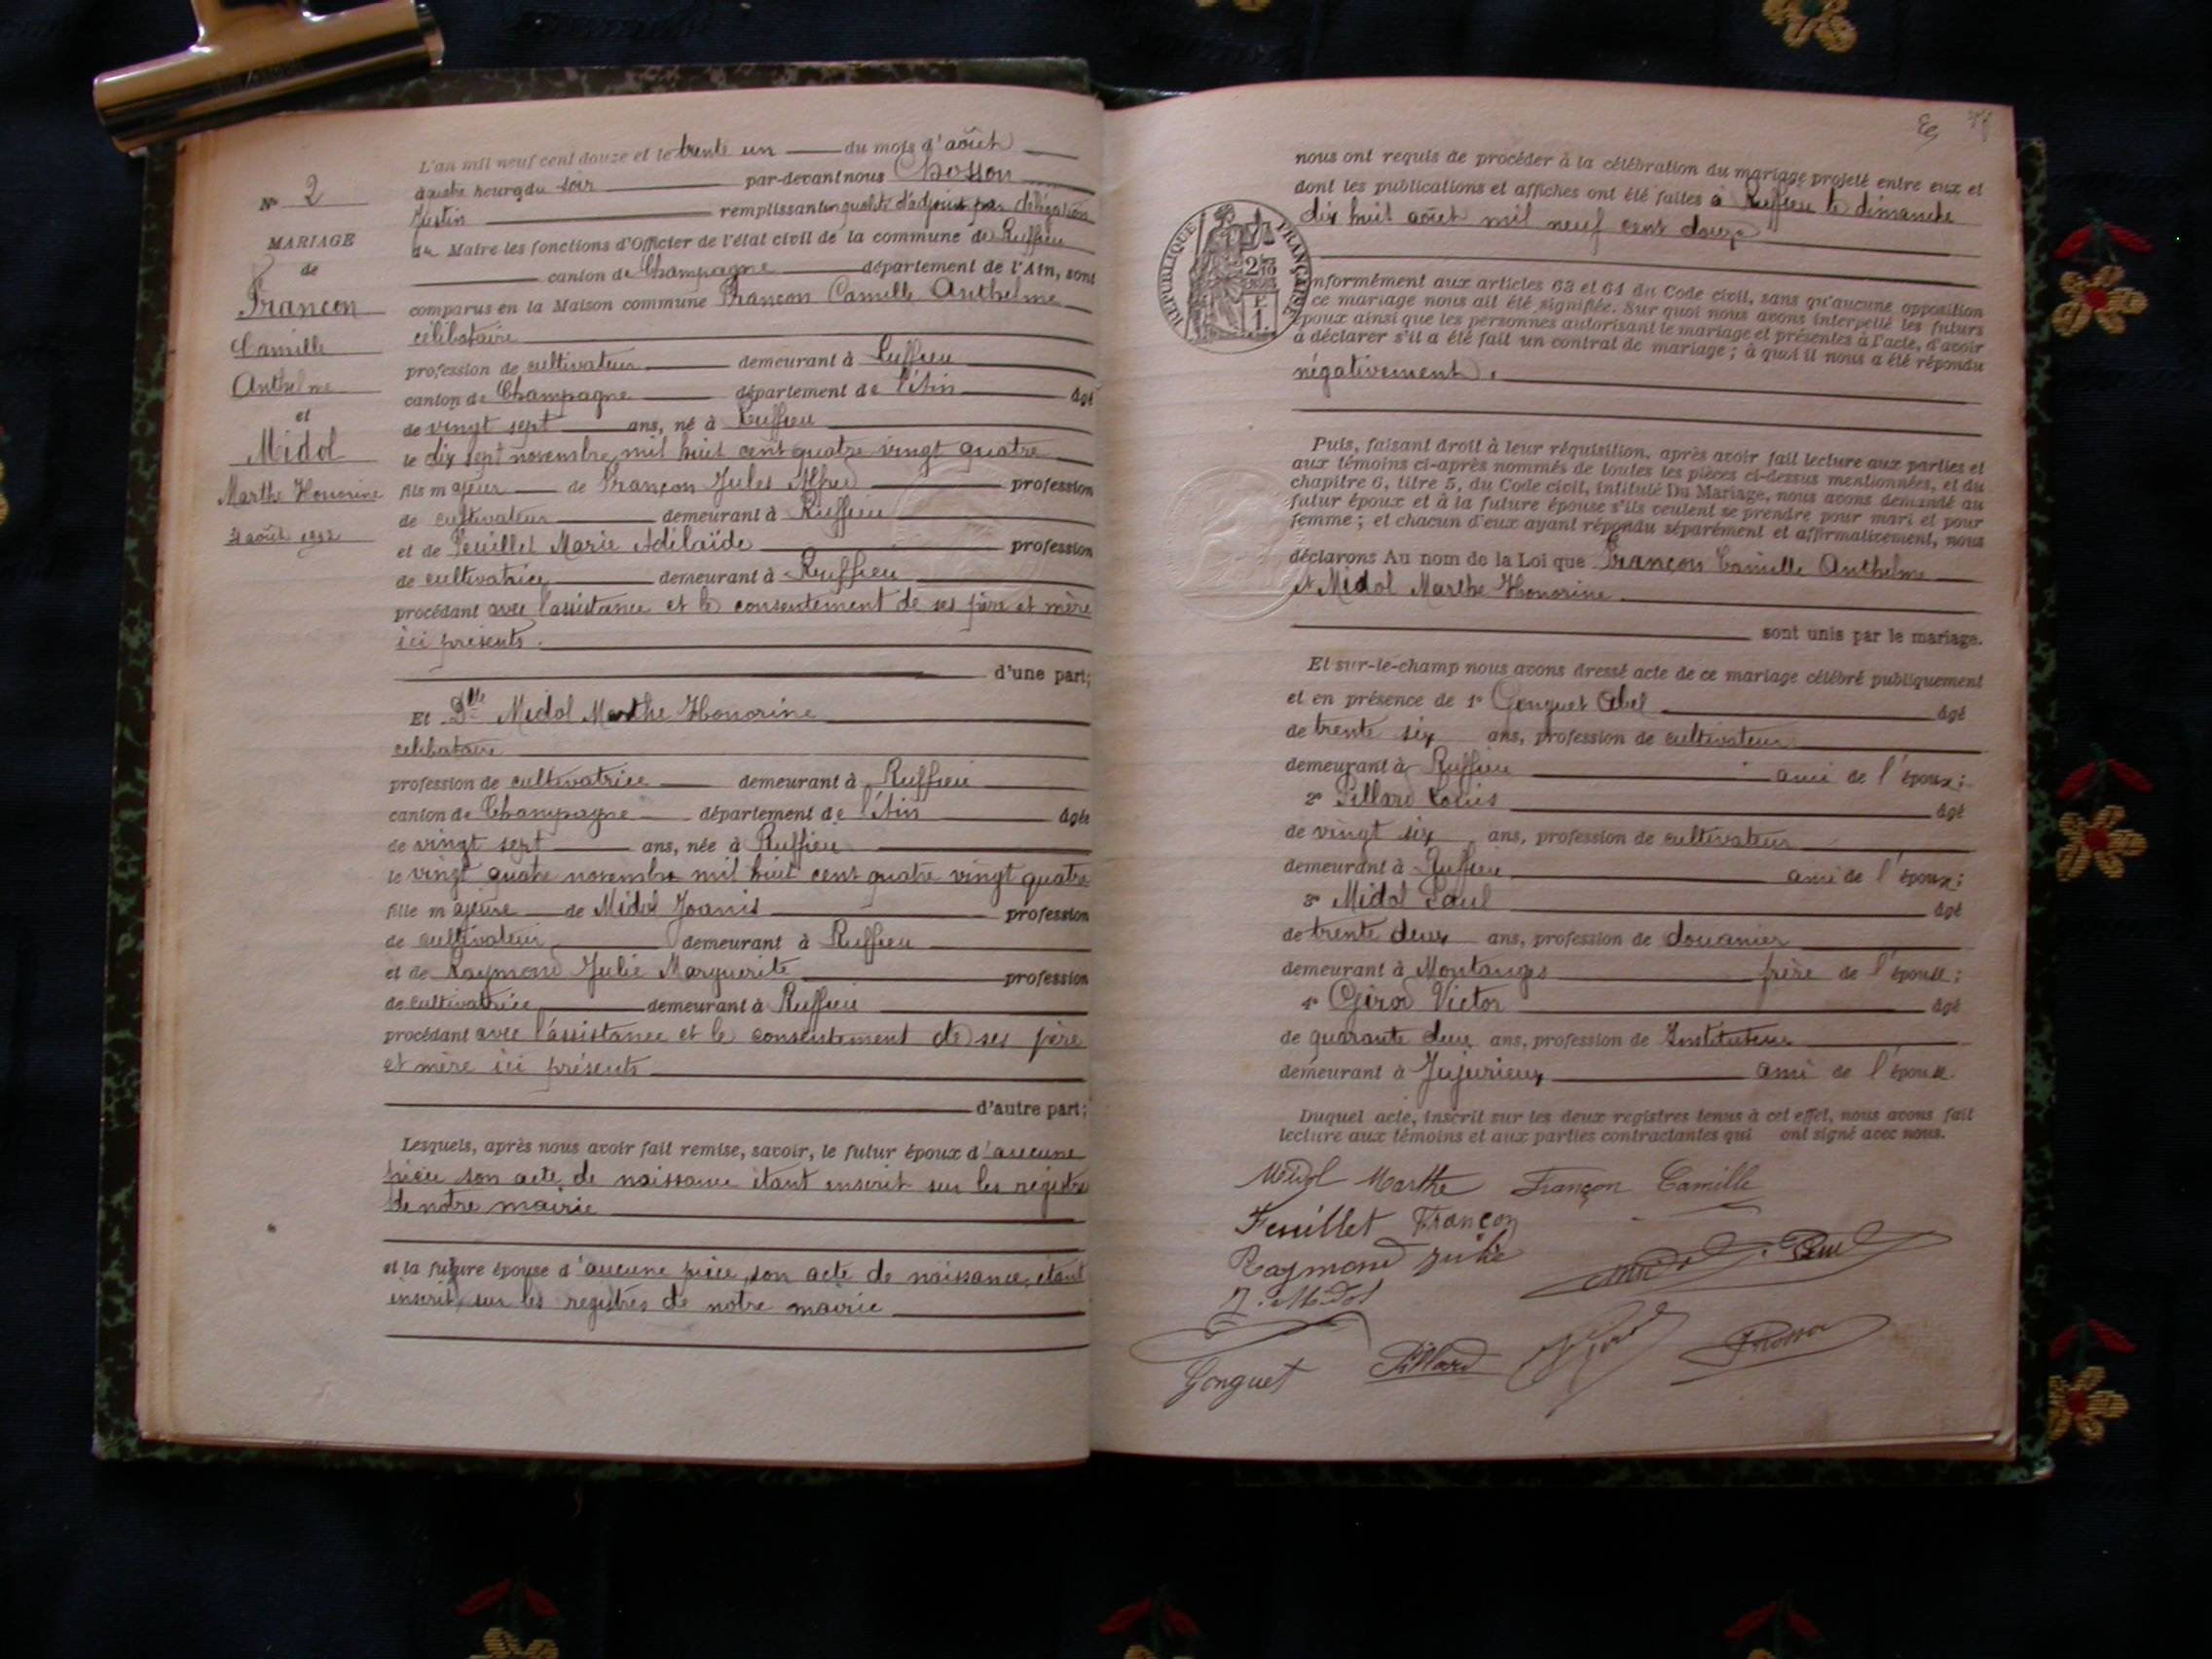 N° 2
MARIAGE
de
Françon
Camille
Anthelme
et
Midol
Marthe Honorine
31 août 1912
L'an mil neuf cent douze et le trente un du mois d'août
à quatre heures du soir par-devant nous Bosson
Justin remplissant en qualité d'adjoint par délégation
du Maire les fonctions d'Officier de l'état civil de la commune de Ruffieu
canton de Champagne département de l'Ain, sont
comparus en la Maison commune Françon Camille Anthelme
célibataire
profession de cultivateur demeurant à Ruffieu
canton de Champagne département de l'Ain âgé
de vingt sept ans, né à Ruffieu
le dix sept novembre mil huit cent quatre vingt quatre
fils majeur de Françon Jules Alfred profession
de cultivateur demeurant à Ruffieu
et de Feuillet Marie Adélaïde profession
de cultivatrice demeurant à Ruffieu
procédant avec l'assistance et le consentement de ses père et mère
ici présents.
d'une part;
Et Dlle Midol Marthe Honorine
célibataire
profession de cultivatrice demeurant à Ruffieu
canton de Champagne département de l'Ain âgée
de vingt sept ans, née à Ruffieu
le vingt quatre novembre mil huit cent quatre vingt quatre
fille majeure de Midol Joanis profession
de cultivateur demeurant à Ruffieu
et de Raymond Julie Marguerite profession
de cultivatrice demeurant à Ruffieu
procédant avec l'assistance et le consentement de ses père
et mère ici présents
d'autre part;
Lesquels, après nous avoir fait remise, savoir, le futur époux d'aucune
pièce son acte de naissance étant inscrit sur les registres
de notre mairie
et la future épouse d'aucune pièce, son acte de naissance, étant
inscrit sur les registres de notre mairie
nous ont requis de procéder à la célébration du mariage projeté entre eux et
dont les publications et affiches ont été faites à Ruffieu le dimanche
dix huit août mil neuf cent douze
RÉPUBLIQUE FRANÇAISE
nformément aux articles 63 et 64 du Code civil, sans qu'aucune opposition
ce mariage nous ait été signifiée. Sur quoi nous avons interpellé les futurs
époux ainsi que les personnes autorisant le mariage et présentes à l'acte, d'avoir
à déclarer s'il a été fait un contrat de mariage; à quoi il nous a été répondu
négativement.
Puis, faisant droit à leur réquisition, après avoir fait lecture aux parties et
aux témoins ci-après nommés de toutes les pièces ci-dessus mentionnées, et du
chapitre 6, titre 5, du Code civil, intitulé Du Mariage, nous avons demandé au
futur époux et à la future épouse s'ils veulent se prendre pour mari et pour
femme; et chacun d'eux ayant répondu séparément et affirmativement, nous
déclarons Au nom de la Loi que Françon Camille Anthelme
et Midol Marthe Honorine
sont unis par le mariage.
Et sur-le-champ nous avons dressé acte de ce mariage célébré publiquement
et en présence de 1° Gonguet Abel âgé
de trente six ans, profession de cultivateur
demeurant à Ruffieu ami de l'époux;
2° Pillard Louis âgé
de vingt six ans, profession de cultivateur
demeurant à Ruffieu ami de l'époux;
3° Midol Paul âgé
de trente deux ans, profession de douanier
demeurant à Montanges frère de l'épouse;
4° Girod Victor âgé
de quarante deux ans, profession de Instituteur
demeurant à Jujurieux ami de l'épouse.
Duquel acte, inscrit sur les deux registres tenus à cet effet, nous avons fait
lecture aux témoins et aux parties contractantes qui ont signé avec nous.
Midol Marthe Françon Camille
Feuillet Françon
Raymond Julie Midol Paul
J. Midol
Gonguet Pillard V Girod J Bosson